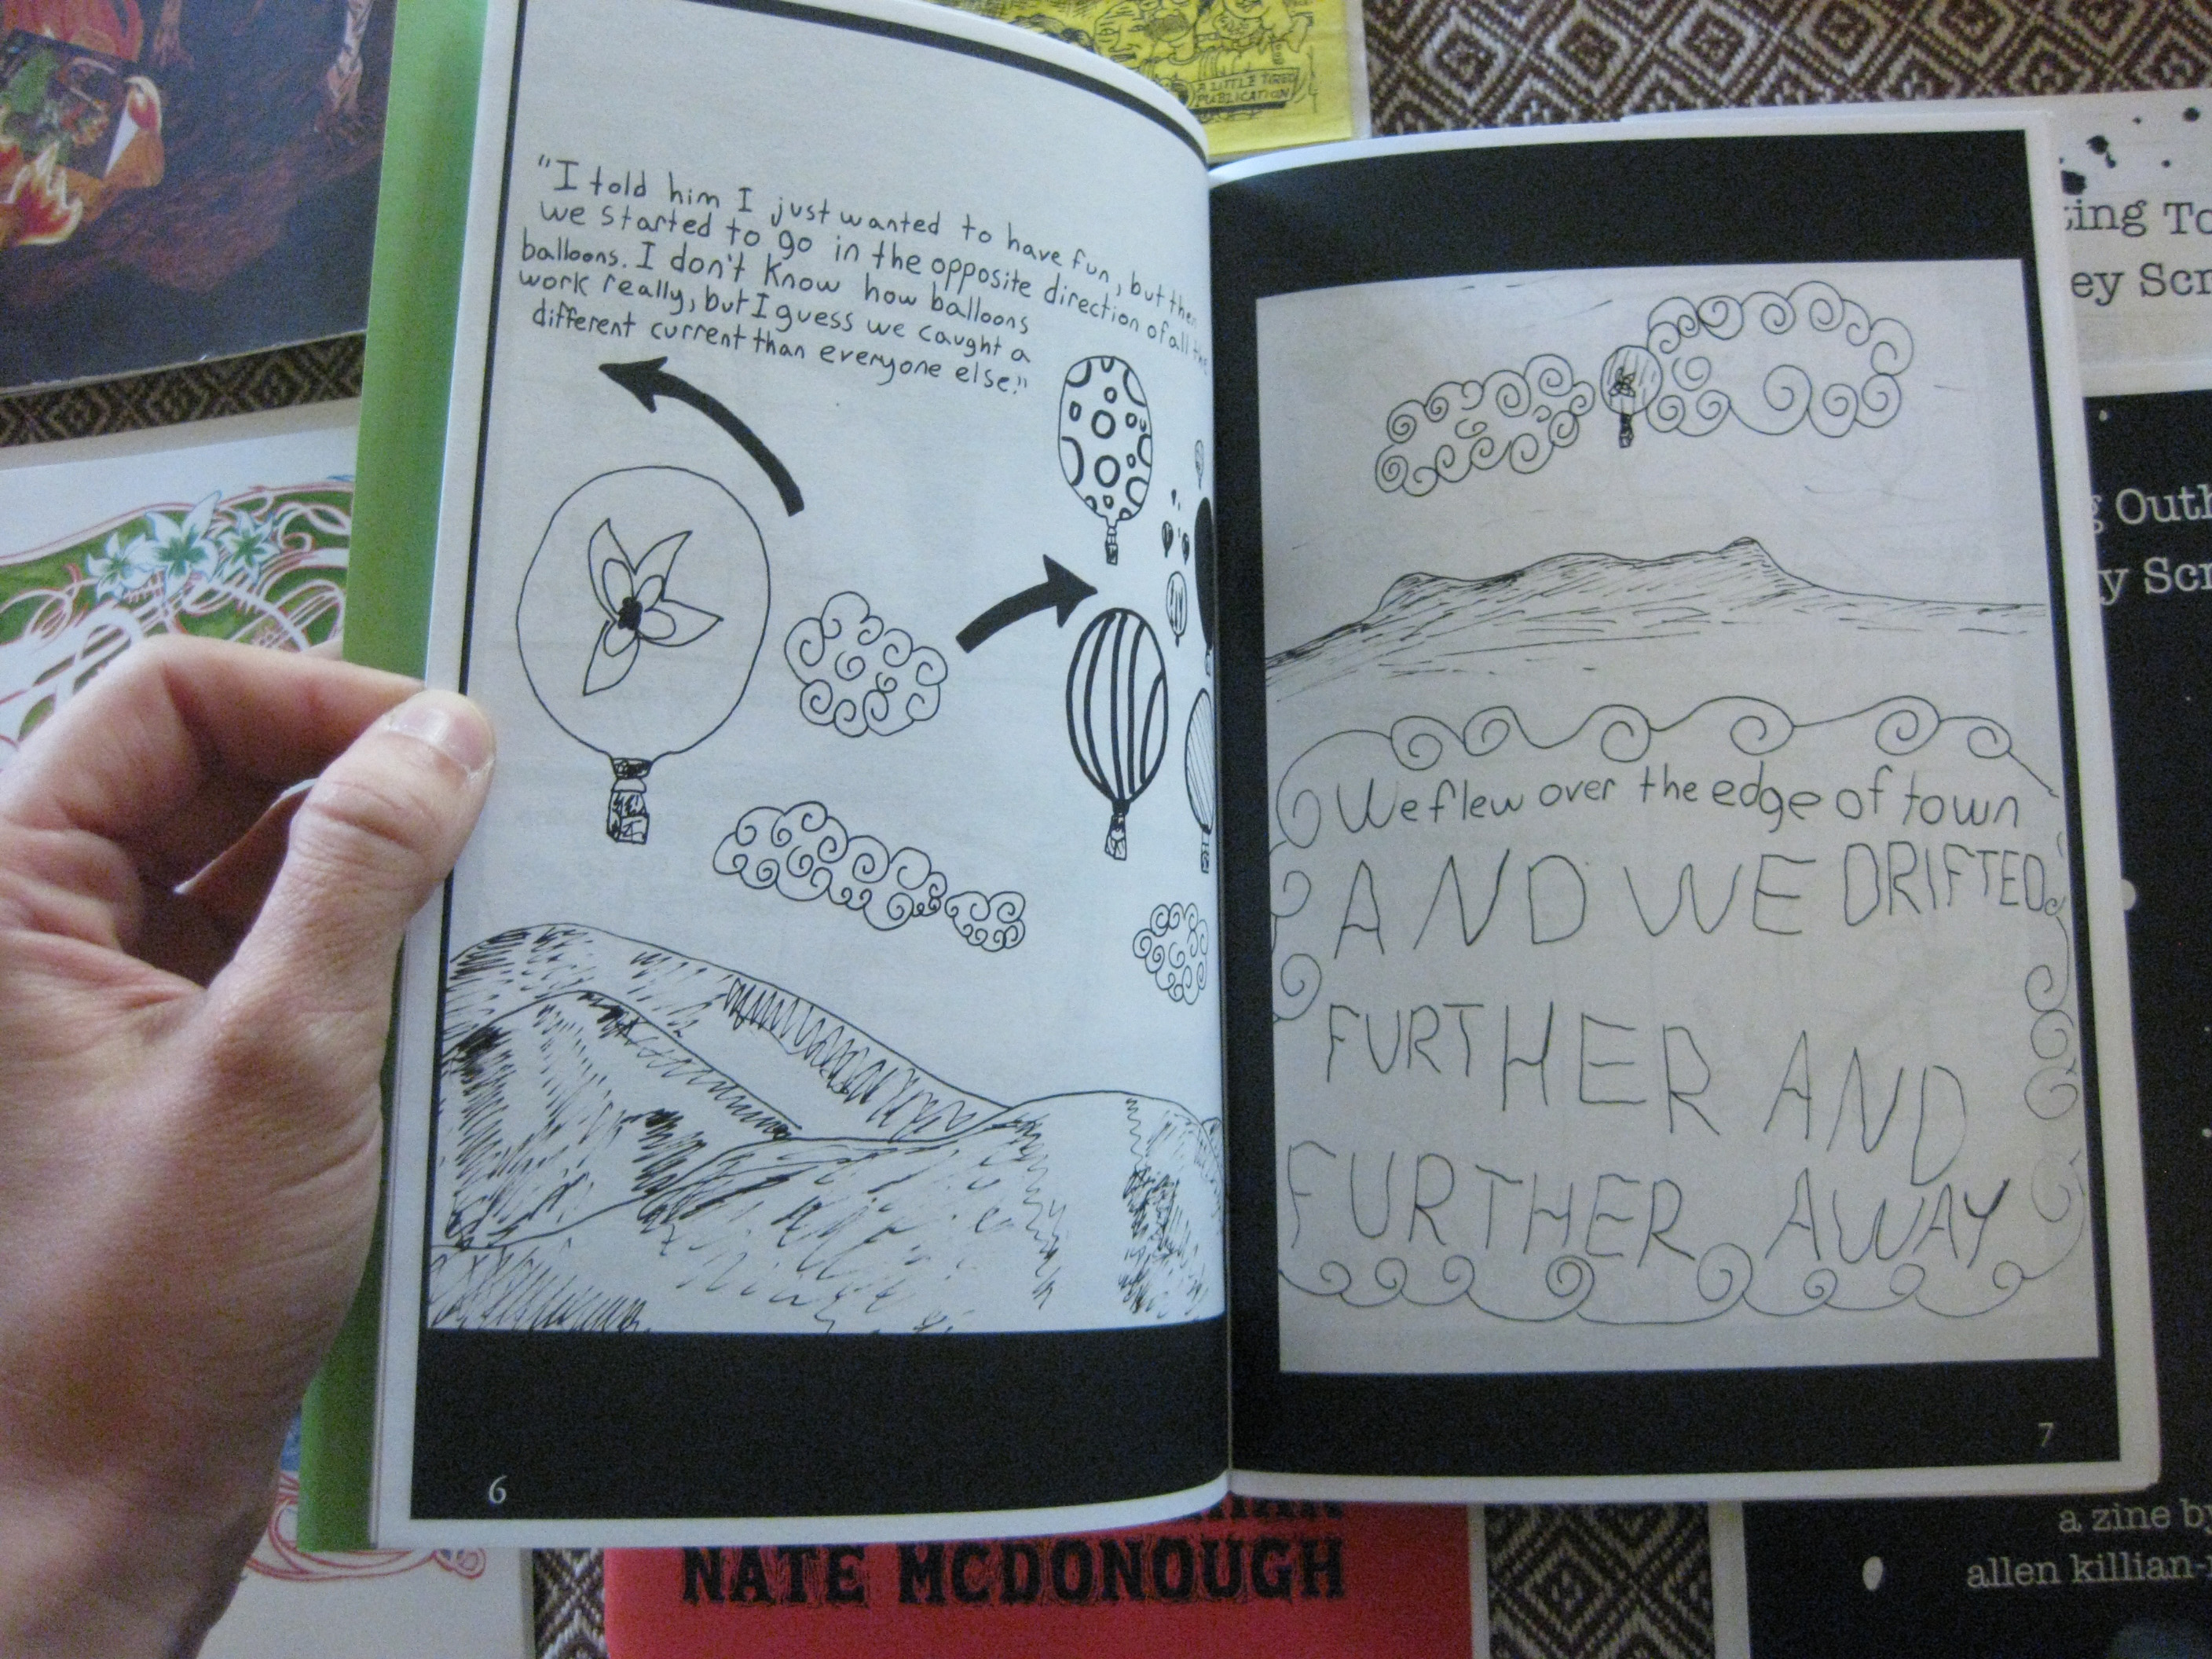 A LITTLE TIRED
PUBLICATION
"I told him I just wanted to have fun, but then
we started to go in the opposite direction of all the
balloons. I don't know how balloons
work really, but I guess we caught a
different current than everyone else."
6
We flew over the edge of town
AND WE DRIFTED
FURTHER AND
FURTHER AWAY
7
NATE MCDONOUGH
a zine by
allen killian-